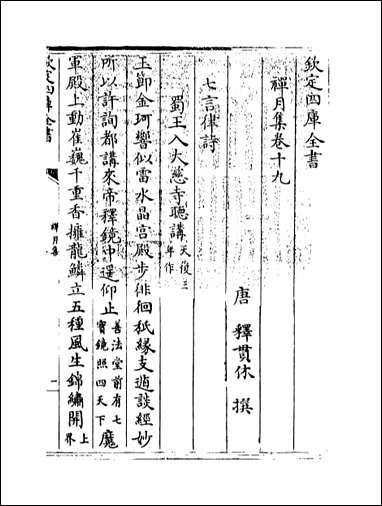 欽定四庫全書
禪月集卷十九
唐 釋貫休 撰
七言律詩
蜀王入大慈寺聽講天復三年作
玉節金珂響似雷水晶宫殿步徘徊秖緣支遁談經妙
所以許詢都講來帝釋鏡中遥仰止善法堂前有七寳鏡照四天下魔
軍殿上動崔巍千重香擁龍鱗立五種風生錦繡開上界
欽定四庫全書
禪月集
一